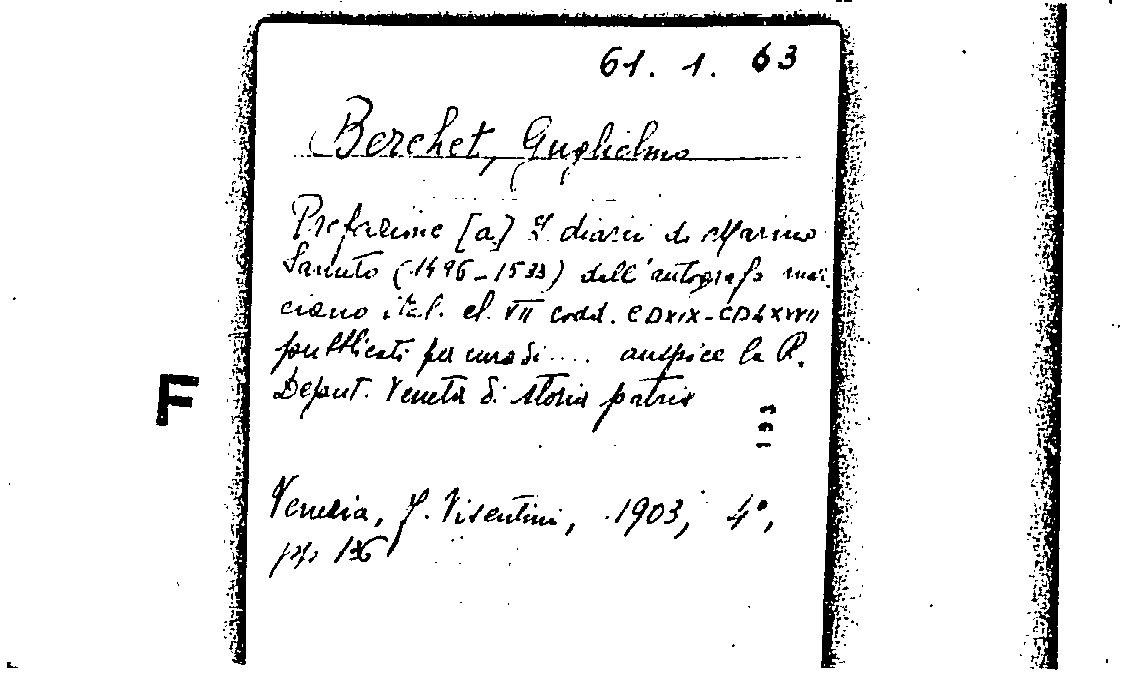 61. 1. 63
Berchet, Guglielmo
Prefazione [a] I diarii di Marino
Sanuto (1496-1533) dall'autografo mar
ciano ital. cl. VII codd. CDXIX-CDLXXVII
pubblicati per cura di .... auspice la R.
Deput. Veneta di storia patria
F
193
Venezia, F. Visentini, 1903, 4°,
pp